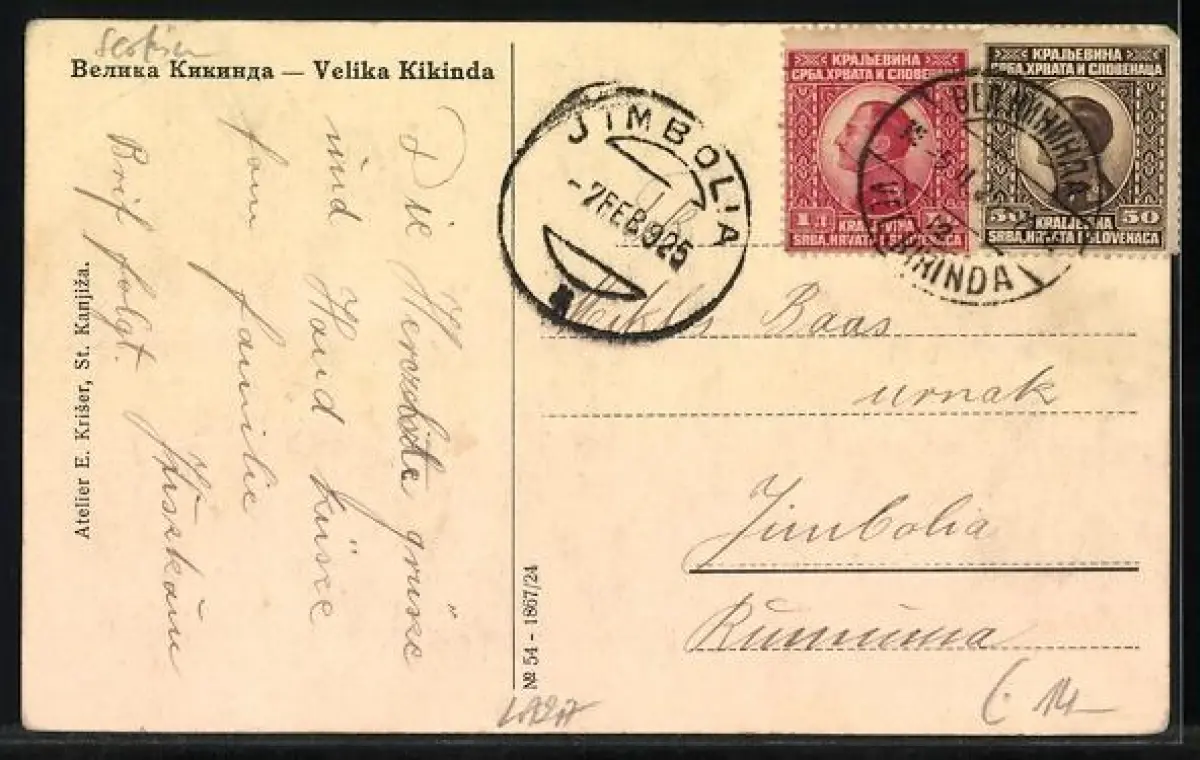 Serbien
Велика Кикинда — Velika Kikinda
Die Herzlichste grüsse
und Hand küsse
fom familie
Brief folgt.
Atelier E. Krišer, St. Kanjiža.
№ 54 - 1867/24
JIMBOLIA
-7 FEB 925
КРАЉЕВИНА
СРБА, ХРВАТА И СЛОВЕНАЦА
1 Д
KRALJEVINA
SRBA, HRVATA I SLOVENACA
КРАЉЕВИНА
СРБА, ХРВАТА И СЛОВЕНАЦА
50 50
KRALJEVINA
SRBA, HRVATA I SLOVENACA
ВЕЛ. КИКИНДА
VEL. KIKINDA
Miklos Baas
urnak
Jimbolia